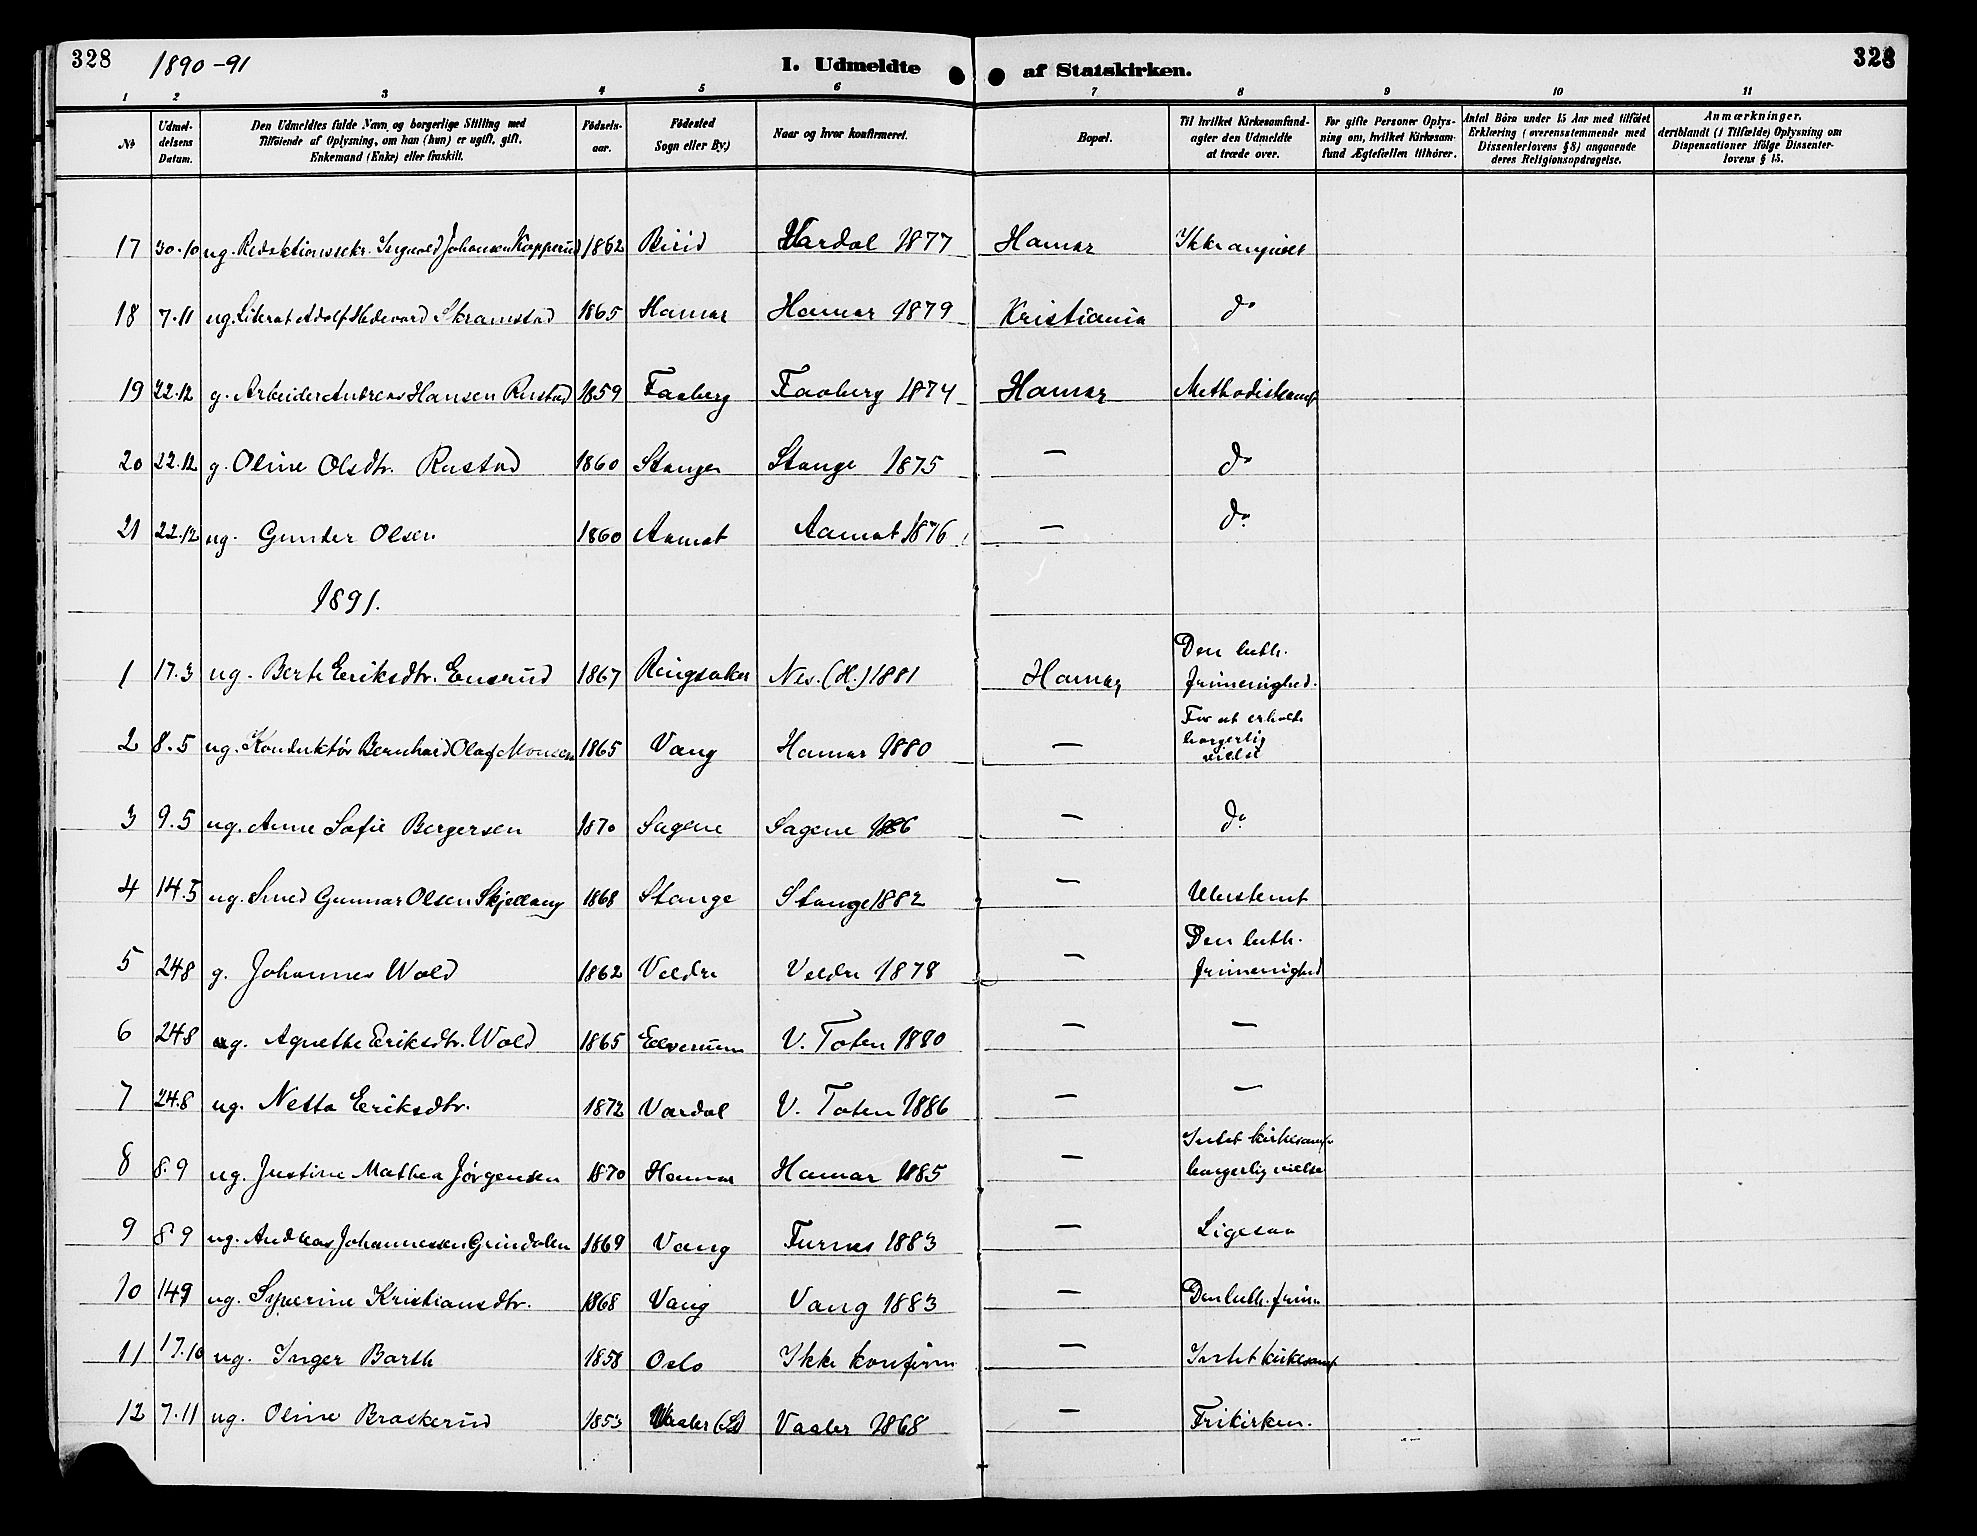 328 1890-91 I. Udmeldte af Statskirken. 328
1 2 3 4 5 6 7 8 9 10 11
№ | Udmel-delsens Datum. | Den Udmeldtes fulde Navn og borgerlige Stilling med Tilföiende af Oplysning, om han (hun) er ugift, gift, Enkemand (Enke) eller fraskilt. | Födsels-aar. | Födested Sogn eller By.) | Naar og hvor konfirmeret. | Bopæl. | Til hvilket Kirkesamfund agter den Udmeldte at træde over. | For gifte Personer Oplys-ning om, hvilket Kirkesam-fund Ægtefællen tilhörer. | Antal Börn under 15 Aar med tilföiet Erklæring (overensstemmende med Dissenterlovens § 8) angaaende deres Religionsopdragelse. | Anmærkninger, deriblandt (i Tilfælde) Oplysning om Dispensationer ifölge Dissenter-lovens § 15.
17 30.10 ug. Redaktionssekr. Ingvald Johansen Kopperud 1862 Birid Vardal 1877 Hamar Ikke angivet
18 7.11 ug. Literat Adolf Hedevard Skramstad 1865 Hamar Hamar 1879 Kristiania do
19 22.12 g. Arbeider Andreas Hansen Rustad 1859 Faaberg Faaberg 1874 Hamar Methodistsamf
20 22.12 g. Oline Olsdtr. Rustad 1860 Stange Stange 1875 — do
21 22.12 ug. Gunder Olsen 1860 Aamot Aamot 1876 — do
1891.
1 17.3 ug. Berte Eriksdtr. Ensrud 1867 Ringsaker Nes. (H.) 1881 Hamar Den luth. frimenighed.
2 8.5 ug. Konduktør Bernhard Olaf Monsen 1865 Vang Hamar 1880 — For at erholde borgerlig vielse
3 9.5 ug. Anne Sofie Bergersen 1870 Sagene Sagene 1886 — do
4 14.5 ug. Smed Gunnar Olsen Skjellang 1868 Stange Stange 1882 — Ubestemt
5 24.8 g. Johannes Wold 1862 Veldre Veldre 1878 — Den luth. frimenighed
6 24.8 g. Agnethe Eriksdtr. Wold 1865 Elverum V. Toten 1880 — —
7 24.8 ug. Netta Eriksdtr. 1872 Vardal V. Toten 1886 — —
8 8.9 ug. Justine Mathea Jørgensen 1870 Hamar Hamar 1885 — Intet kirkesamf borgerlig vielse
9 8.9 ug. Andreas Johannessen Grindalen 1869 Vang Furnes 1883 — Ligesaa
10 14.9 ug. Syverine Kristiansdtr. 1868 Vang Vang 1883 — Den luth. frim
11 17.10 ug. Inger Barth 1858 Oslo Ikke konfirm — Intet kirkesamf
12 7.11 ug. Oline Braskerud 1853 Vaaler Vaaler 1868 — Frikirken.